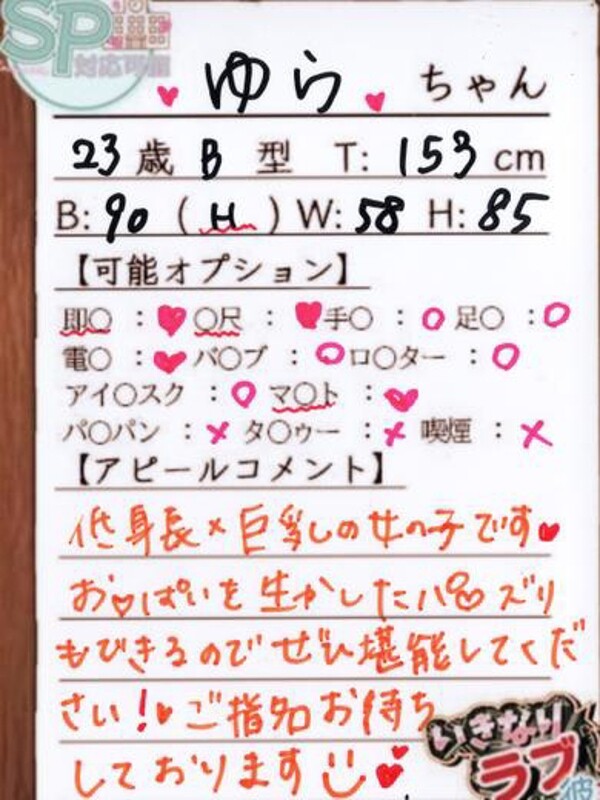 SP
対応可能
ゆら ちゃん
23歳 B型 T: 153cm
B: 90 (H) W: 58 H: 85
【可能オプション】
即〇 : ♥ 〇尺 : ♥ 手〇 : ○ 足〇 : ○
電〇 : ♥ バ〇ブ : ○ ロ〇ター : ○
アイ〇スク : ○ マ〇ト : ♥
パ〇パン : × タ〇ゥー : × 喫煙 : ×
【アピールコメント】
低身長×巨乳しの女の子です♥
お♡ぱいを生かしたパ〇ズリ
もできるのでぜひ堪能してくだ
さい!♥ご指名お待ち
しております
いきなり
ラブ
彼